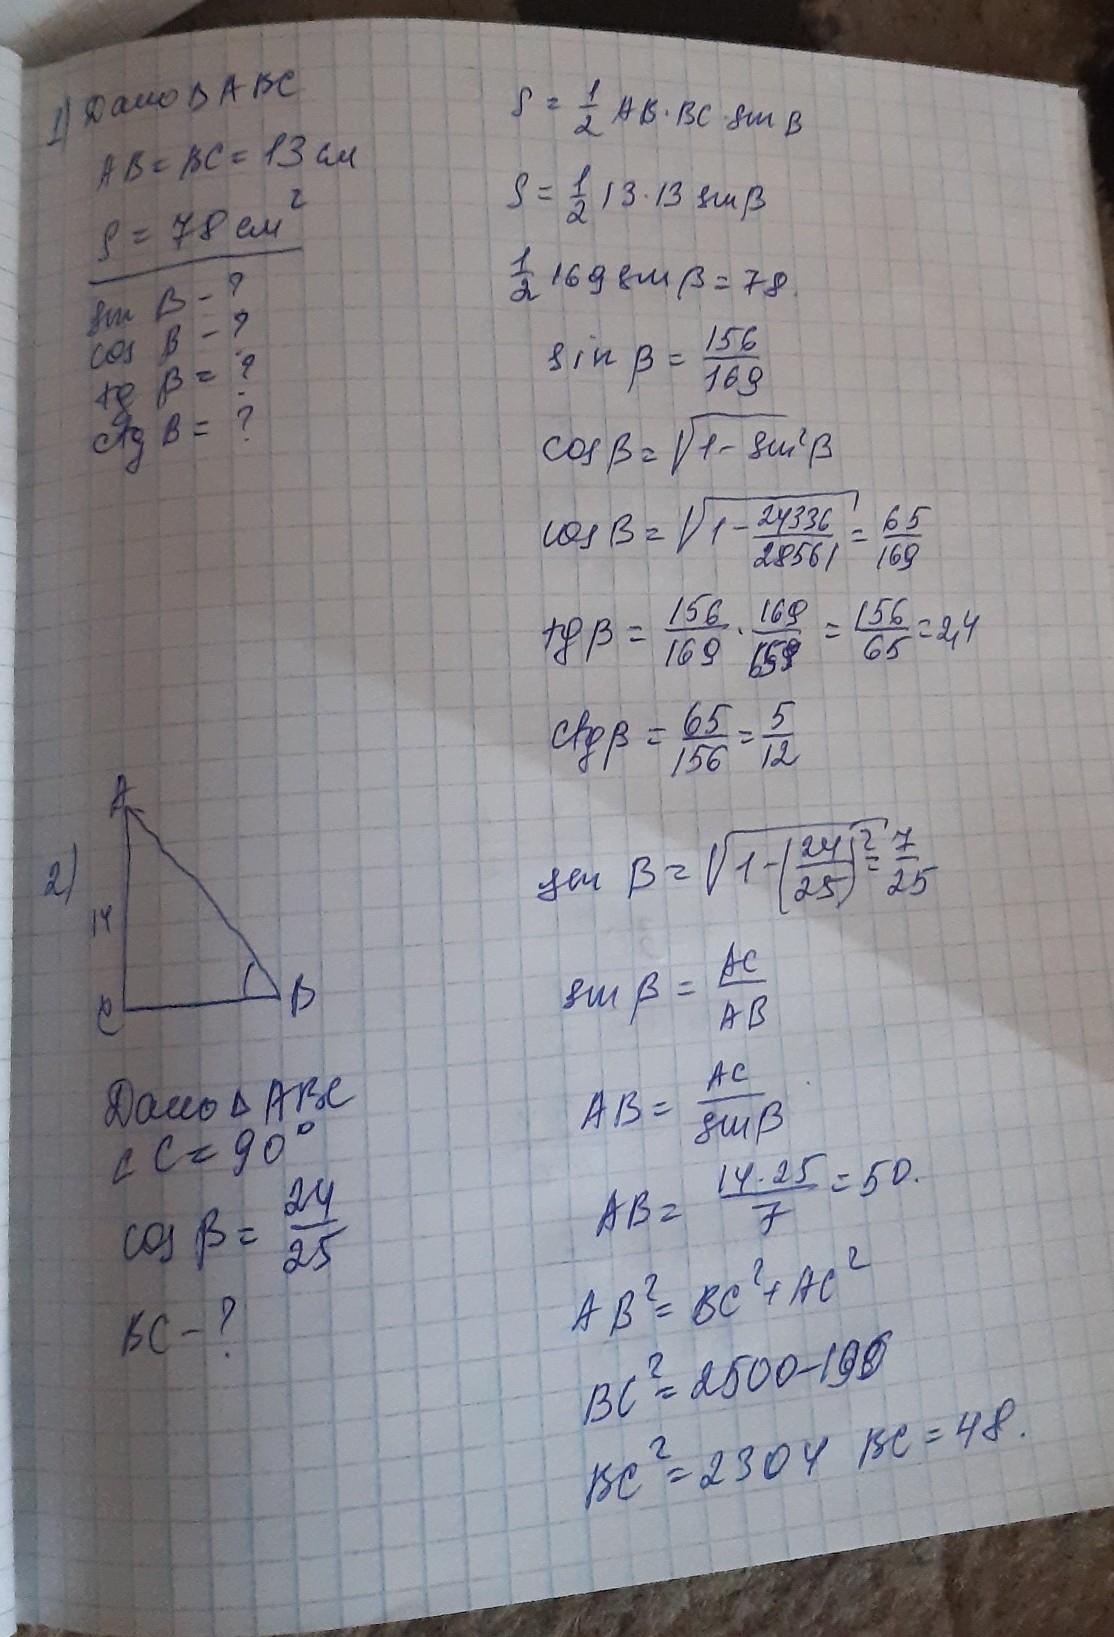 1) Дано Δ ABC
AB = BC = 13 см
S = 78 см²
sin B - ?
cos B - ?
tg B = ?
ctg B = ?
S = 1/2 AB · BC · sin B
S = 1/2 13 · 13 sin β
1/2 169 sin β = 78.
sin β = 156/169
cos β = √1 - sin²β
cos B = √1 - 24336/28561 = 65/169
tg β = 156/169 · 169/65 = 156/65 = 2,4
ctg β = 65/156 = 5/12
2)
A
14
C
B
Дано Δ ABC
∠ C = 90°
cos β = 24/25
BC - ?
sin B = √1 - (24/25)² = 7/25
sin β = AC/AB
AB = AC/sin β
AB = 14·25/7 = 50.
AB² = BC² + AC²
BC² = 2500 - 196
BC² = 2304 BC = 48.